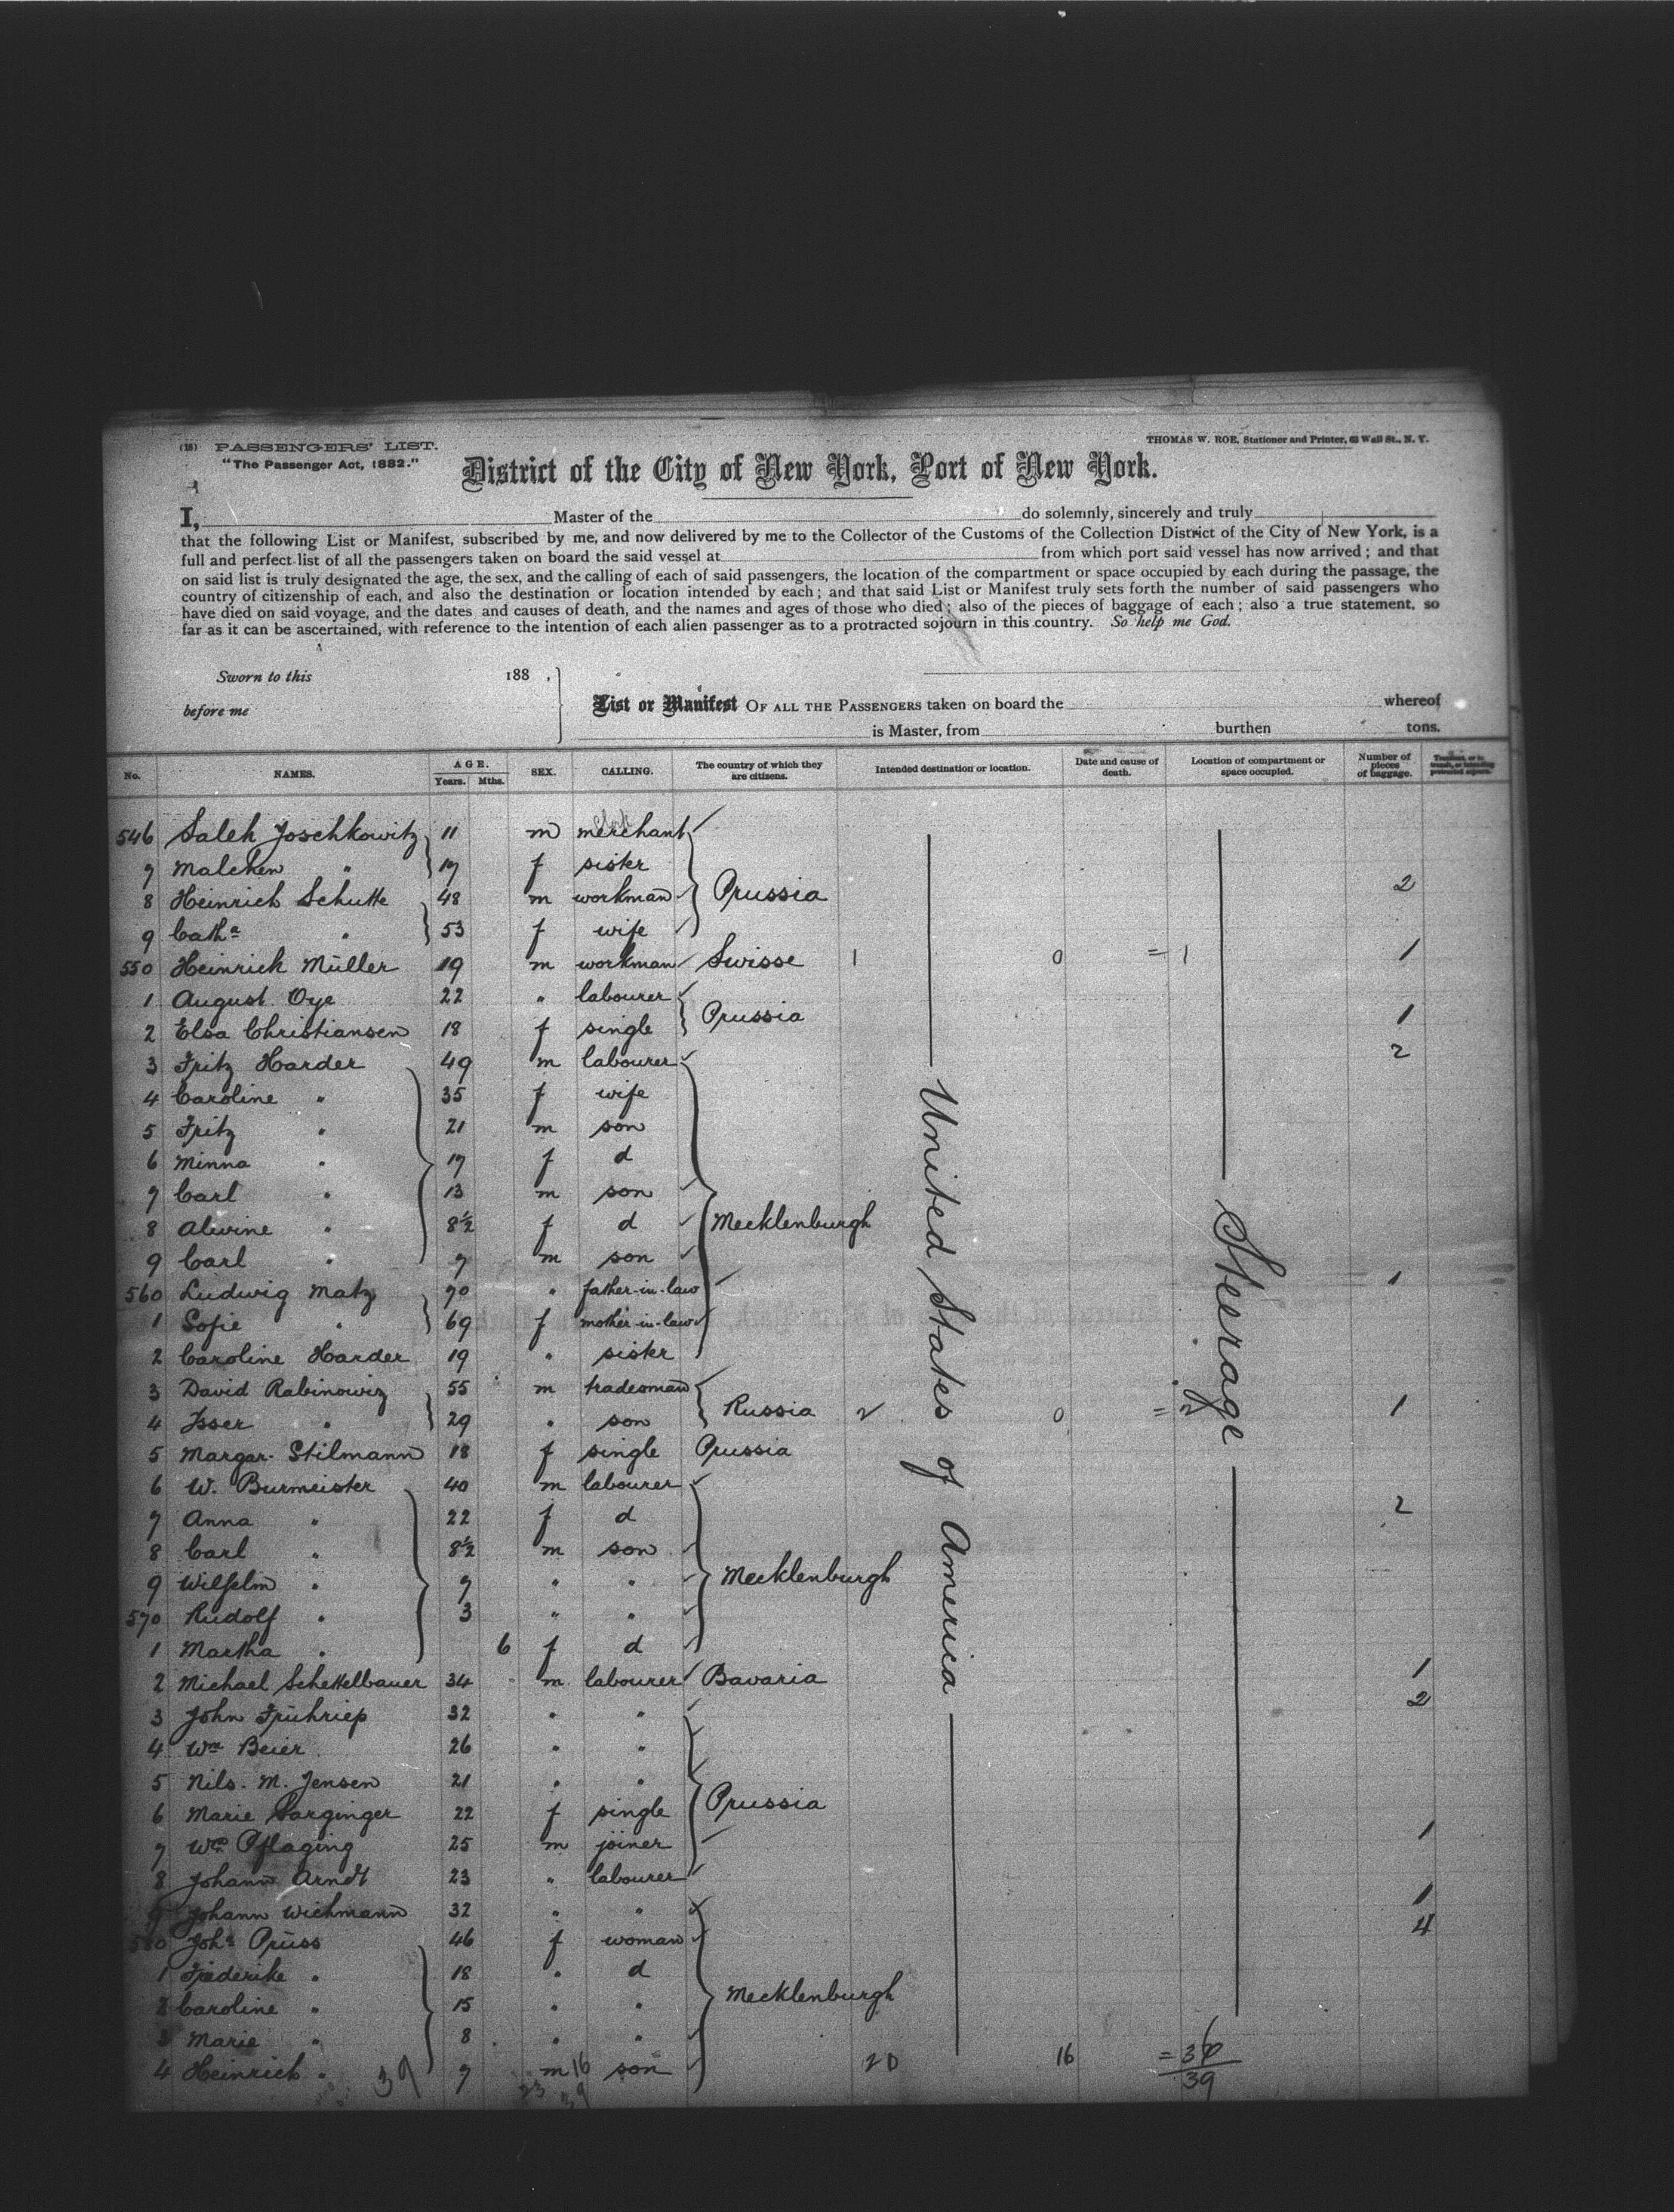 (18) PASSENGERS' LIST.
THOMAS W. ROE, Stationer and Printer, 63 Wall St., N. Y.
"The Passenger Act, 1882."
District of the City of New York, Port of New York.
I, Master of the do solemnly, sincerely and truly
that the following List or Manifest, subscribed by me, and now delivered by me to the Collector of the Customs of the Collection District of the City of New York, is a
full and perfect list of all the passengers taken on board the said vessel at from which port said vessel has now arrived; and that
on said list is truly designated the age, the sex, and the calling of each of said passengers, the location of the compartment or space occupied by each during the passage, the
country of citizenship of each, and also the destination or location intended by each; and that said List or Manifest truly sets forth the number of said passengers who
have died on said voyage, and the dates and causes of death, and the names and ages of those who died; also of the pieces of baggage of each; also a true statement, so
far as it can be ascertained, with reference to the intention of each alien passenger as to a protracted sojourn in this country. So help me God.
Sworn to this 188 ,
before me
List or Manifest OF ALL THE PASSENGERS taken on board the whereof
is Master, from burthen tons.
No. NAMES. AGE. Years. Mths. SEX. CALLING. The country of which they are citizens. Intended destination or location. Date and cause of death. Location of compartment or space occupied. Number of pieces of baggage.
546 Saleh Joschkowitz 11 m merchant
7 Malchen " 17 f sister
8 Heinrich Schutte 48 m workman Prussia 2
9 Catha " 53 f wife
550 Heinrich Müller 19 m workman Swisse 1 0 = 1 1
1 August Oye 22 " labourer
2 Elsa Christiansen 18 f single Prussia 1
3 Fritz Harder 49 m labourer 2
4 Caroline " 35 f wife
5 Fritz " 21 m son
6 Minna " 17 f d
7 Carl " 13 m son
8 Alwine " 8½ f d Mecklenburgh
9 Carl " 7 m son
560 Ludwig Matz 70 " father-in-law 1
1 Sofie " 69 f mother-in-law
2 Caroline Harder 19 " sister
3 David Rabinowiz 55 m tradesman
4 Isser " 29 " son Russia 2 0 = 2 1
5 Margar. Stilmann 18 f single Prussia
6 W. Burmeister 40 m labourer
7 Anna " 22 f d 2
8 Carl " 8½ m son
9 Wilhelm " 7 " " Mecklenburgh
570 Rudolf " 3 " "
1 Martha " 6 f d
2 Michael Schettelbauer 34 m labourer Bavaria 1
3 John Frühriep 32 " " 2
4 Wm Beier 26 " "
5 Nils. M. Jensen 21 " "
6 Marie Sarginger 22 f single Prussia
7 Wm Pflaging 25 m joiner 1
8 Johann Arndt 23 " labourer
9 Johann Wichmann 32 " " 1
580 Joha Prüss 46 f woman 4
1 Friederike " 18 " d
2 Caroline " 15 " " Mecklenburgh
3 Marie " 8 " "
4 Heinrich " 7 m son 20 16 = 36
39 16 39
23 39
United States of America
Steerage